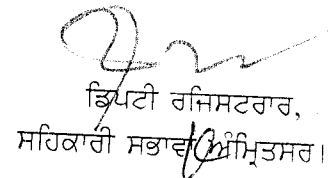 ਡਿਪਟੀ ਰਜਿਸਟਰਾਰ,
ਸਹਿਕਾਰੀ ਸਭਾਵਾਂ ਅੰਮ੍ਰਿਤਸਰ।